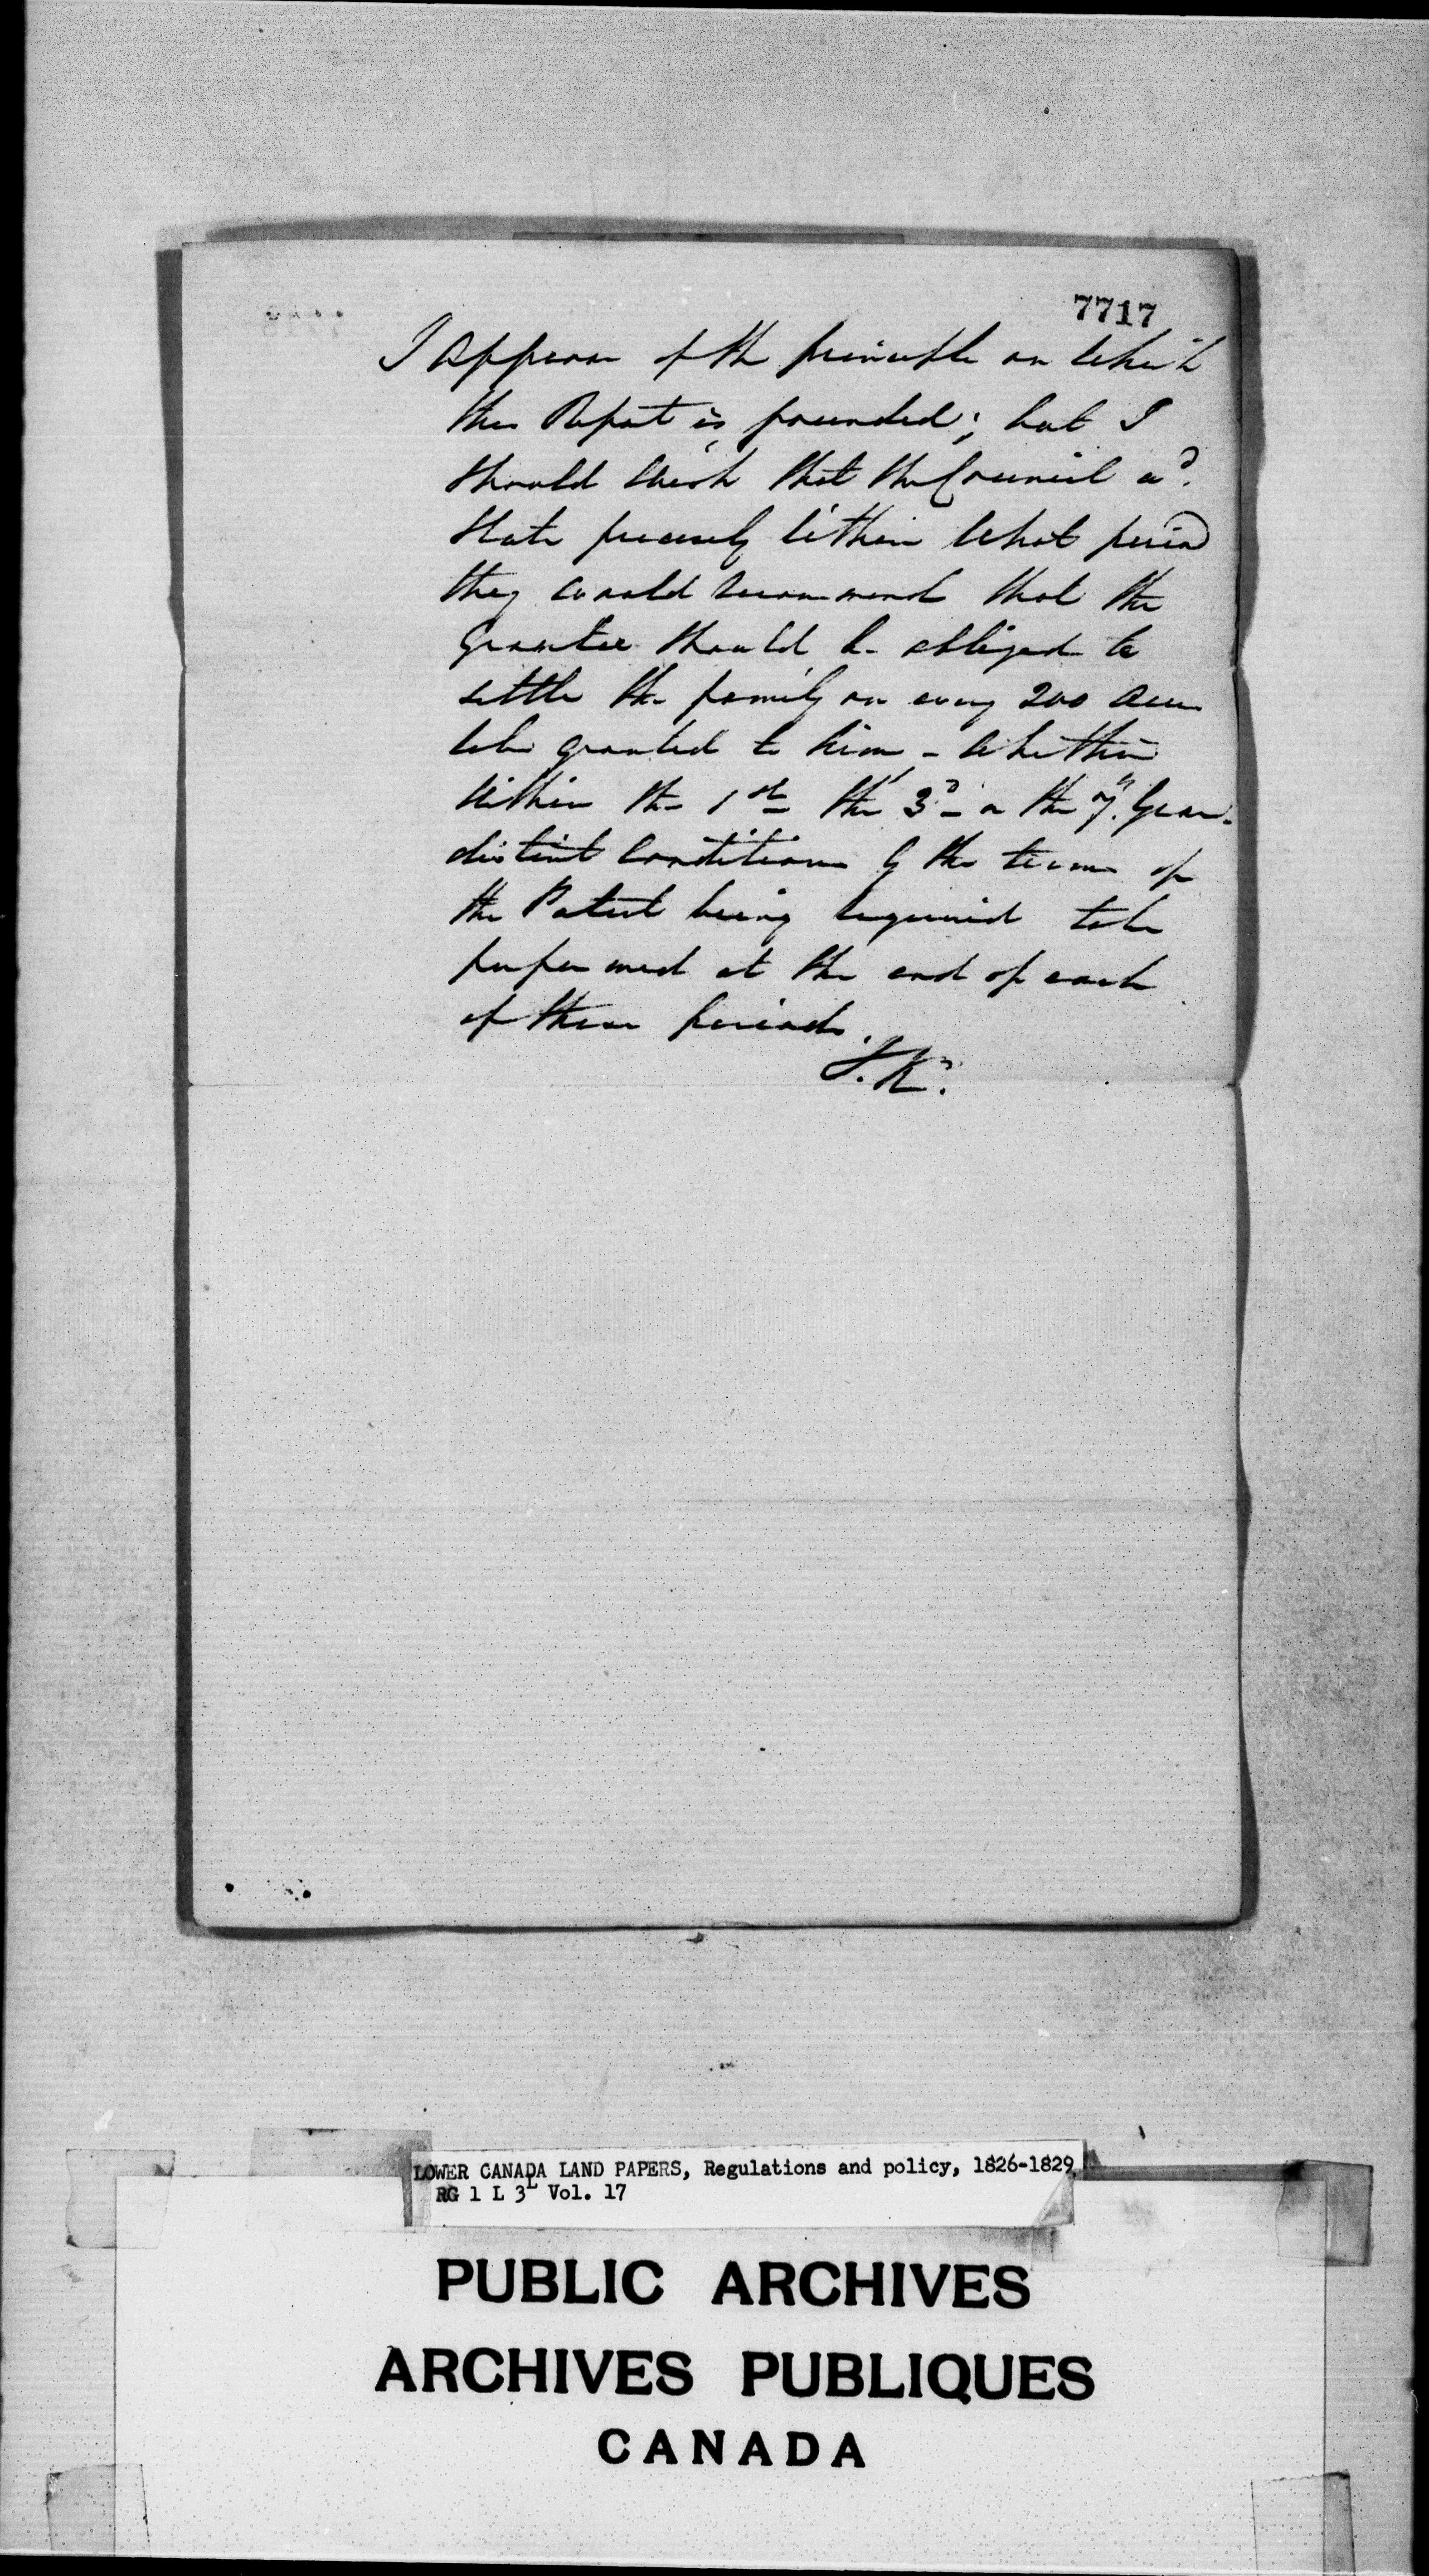 7717
I approve of the principle on which
this Report is founded; but I
should wish that the Council wd.
state precisely within what period
they would recommend that the
Grantee should be obliged to
settle the family on every 200 acres
to be granted to him - whether
within the 1st the 3d - or the 7th. year -
distinct conditions by the terms of
the Patent being required to be
performed at the end of each
of these periods.
J.K.
LOWER CANADA LAND PAPERS, Regulations and policy, 1826-1829
RG 1 L 3L Vol. 17
PUBLIC ARCHIVES
ARCHIVES PUBLIQUES
CANADA